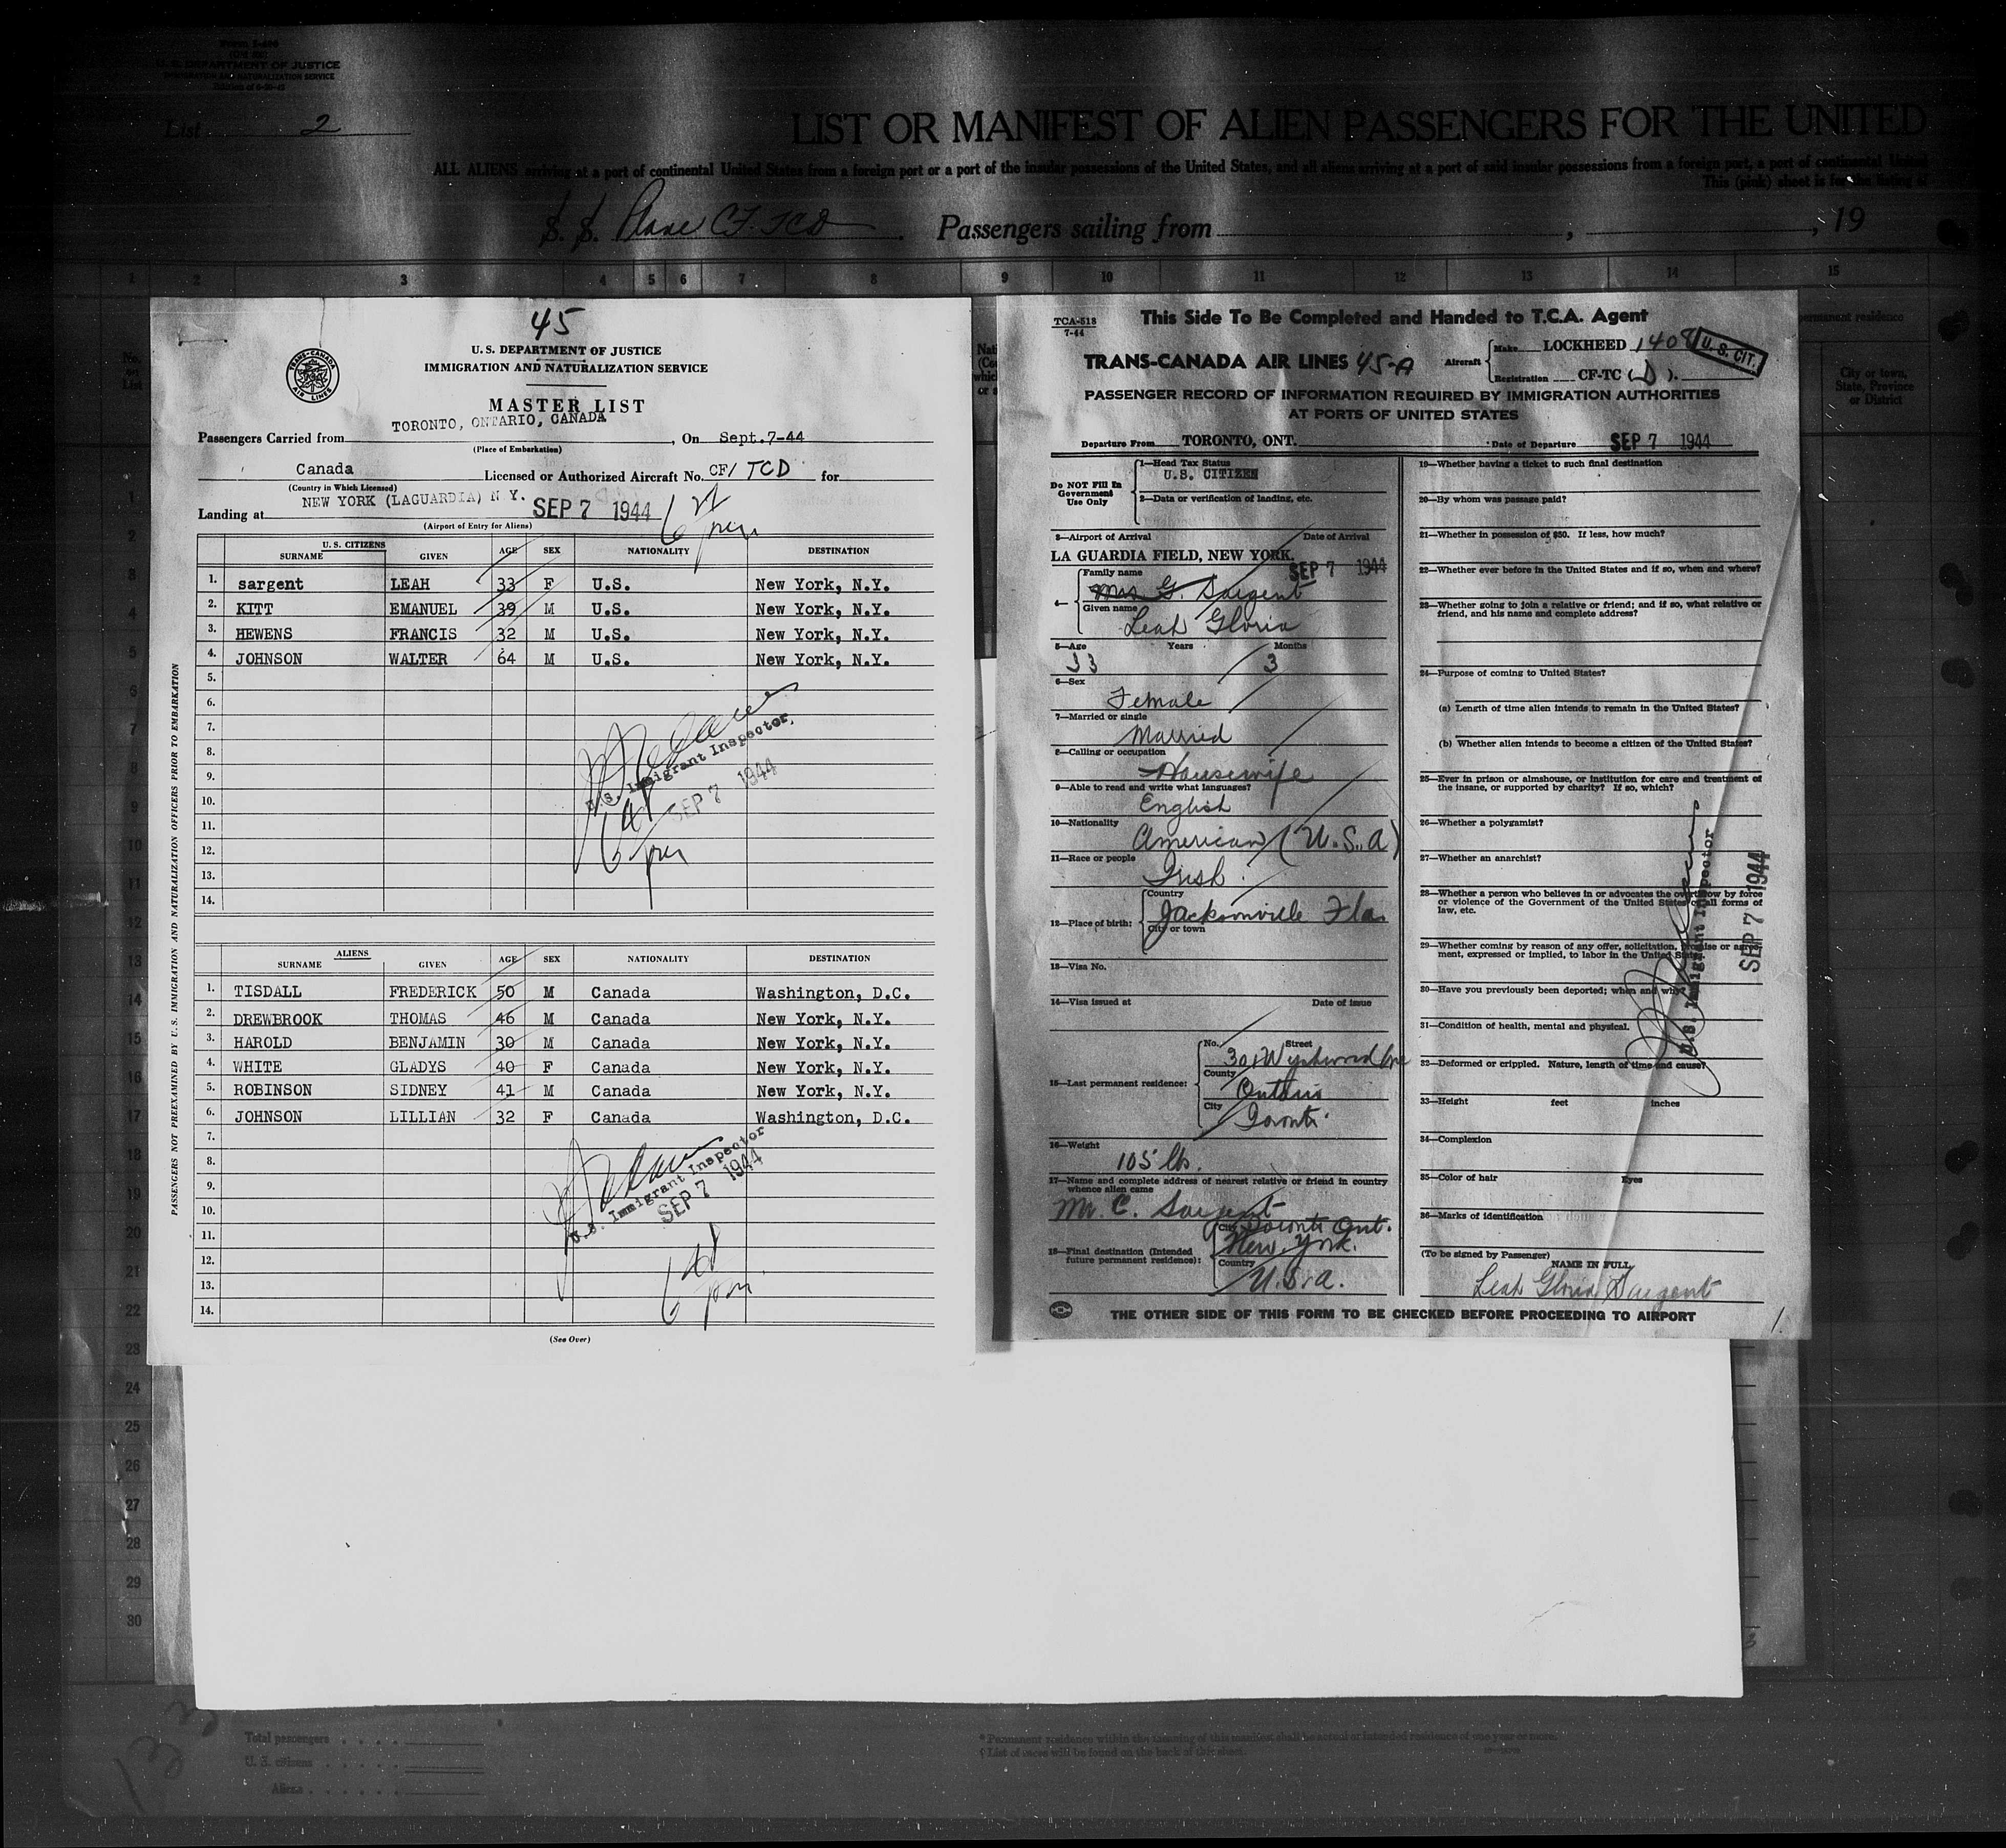 Form I-466
U. S. DEPARTMENT OF JUSTICE
IMMIGRATION AND NATURALIZATION SERVICE
List 2
LIST OR MANIFEST OF ALIEN PASSENGERS FOR THE UNITED
ALL ALIENS arriving at a port of continental United States from a foreign port or a port of the insular possessions of the United States, and all aliens arriving at a port of said insular possessions from a foreign port, a port of continental United
This (pink) sheet is for the listing of
S. S. Plane CF. TCD . Passengers sailing from , , 19
1 2 3 4 5 6 7 8 9 10 11 12 13 14 15
permanent residence
City or town,
State, Province
or District
45
TRANS-CANADA AIR LINES
U. S. DEPARTMENT OF JUSTICE
IMMIGRATION AND NATURALIZATION SERVICE
MASTER LIST
TORONTO, ONTARIO, CANADA
Passengers Carried from , On Sept.7-44
(Place of Embarkation)
Canada Licensed or Authorized Aircraft No. CF/ TCD for
(Country in Which Licensed)
NEW YORK (LAGUARDIA) N.Y. SEP 7 1944
Landing at
(Airport of Entry for Aliens)
U. S. CITIZENS
SURNAME GIVEN AGE SEX NATIONALITY DESTINATION
1. sargent LEAH 33 F U.S. New York, N.Y.
2. KITT EMANUEL 39 M U.S. New York, N.Y.
3. HEWENS FRANCIS 32 M U.S. New York, N.Y.
4. JOHNSON WALTER 64 M U.S. New York, N.Y.
5.
6.
7.
8.
9.
10.
11.
12.
13.
14.
U. S. Immigrant Inspector,
SEP 7 1944
ALIENS
SURNAME GIVEN AGE SEX NATIONALITY DESTINATION
1. TISDALL FREDERICK 50 M Canada Washington, D.C.
2. DREWBROOK THOMAS 46 M Canada New York, N.Y.
3. HAROLD BENJAMIN 30 M Canada New York, N.Y.
4. WHITE GLADYS 40 F Canada New York, N.Y.
5. ROBINSON SIDNEY 41 M Canada New York, N.Y.
6. JOHNSON LILLIAN 32 F Canada Washington, D.C.
7.
8.
9.
10.
11.
12.
13.
14.
U.S. Immigrant Inspector
SEP 7 1944
(See Over)
PASSENGERS NOT PREEXAMINED BY U. S. IMMIGRATION AND NATURALIZATION OFFICERS PRIOR TO EMBARKATION
TCA-518
7-44
This Side To Be Completed and Handed to T.C.A. Agent
TRANS-CANADA AIR LINES 45-A
Aircraft
Make LOCKHEED 1408
Registration CF-TC (D).
U. S. CIT.
PASSENGER RECORD OF INFORMATION REQUIRED BY IMMIGRATION AUTHORITIES
AT PORTS OF UNITED STATES
Departure From TORONTO, ONT. Date of Departure SEP 7 1944
Do NOT Fill In
Government
Use Only
1—Head Tax Status
U.S. CITIZEN
2—Data or verification of landing, etc.
3—Airport of Arrival Date of Arrival
LA GUARDIA FIELD, NEW YORK. SEP 7 1944
4— Family name
Mrs G. Sargent
Given name
Leah Gloria
5—Age Years Months
33 3
6—Sex
Female
7—Married or single
Married
8—Calling or occupation
Housewife
9—Able to read and write what languages?
English
10—Nationality
American (U.S.A)
11—Race or people
Irish
12—Place of birth: Country
Jacksonville Fla.
City or town
13—Visa No.
14—Visa issued at Date of issue
15—Last permanent residence:
No. Street
301 Wychwood Ave
County
Ontario
City
Toronto
16—Weight
105 lbs.
17—Name and complete address of nearest relative or friend in country
whence alien came
Mr. C. Sargent
Toronto Ont.
18—Final destination (Intended
future permanent residence):
City
New York.
Country
U.S.A.
19—Whether having a ticket to such final destination
20—By whom was passage paid?
21—Whether in possession of $50. If less, how much?
22—Whether ever before in the United States and if so, when and where?
23—Whether going to join a relative or friend; and if so, what relative or
friend, and his name and complete address?
24—Purpose of coming to United States?
(a) Length of time alien intends to remain in the United States?
(b) Whether alien intends to become a citizen of the United States?
25—Ever in prison or almshouse, or institution for care and treatment of
the insane, or supported by charity? If so, which?
26—Whether a polygamist?
27—Whether an anarchist?
28—Whether a person who believes in or advocates the overthrow by force
or violence of the Government of the United States or all forms of
law, etc.
29—Whether coming by reason of any offer, solicitation, promise or agree-
ment, expressed or implied, to labor in the United States?
30—Have you previously been deported; when and why?
31—Condition of health, mental and physical.
32—Deformed or crippled. Nature, length of time and cause?
33—Height feet inches
34—Complexion
35—Color of hair Eyes
36—Marks of identification
(To be signed by Passenger)
NAME IN FULL
Leah Gloria Sargent
U.S. Immigrant Inspector
SEP 7 1944
THE OTHER SIDE OF THIS FORM TO BE CHECKED BEFORE PROCEEDING TO AIRPORT
1.
Total passengers
U. S. citizens
Aliens
* Permanent residence within the meaning of this manifest shall be actual or intended residence of one year or more.
† List of races will be found on the back of this sheet.